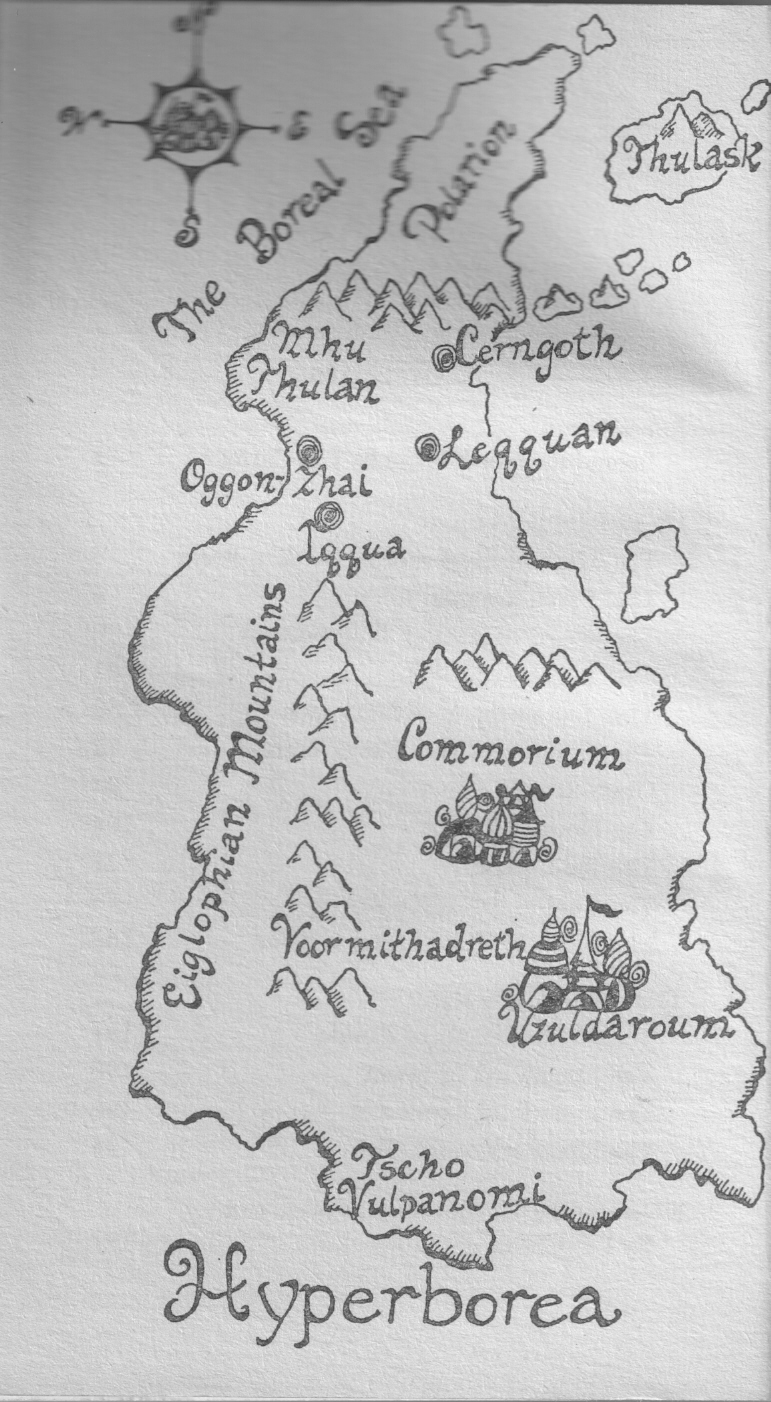 N
W
E
S
The Boreal Sea
Polarion
Thulask
Mhu
Thulan
Cerngoth
Leqquan
Oggon-Zhai
Iqqua
Eiglophian Mountains
Commorium
Voormithadreth
Uzuldaroum
Tscho
Vulpanomi
Hyperborea